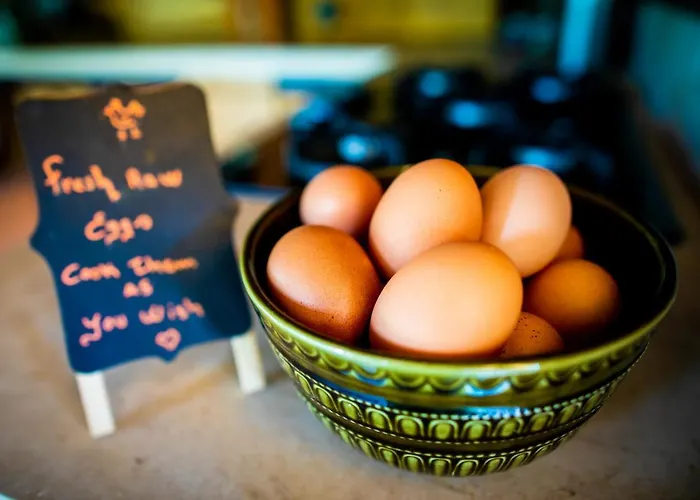 Fresh Raw
Eggs
Cook Them
as
You Wish